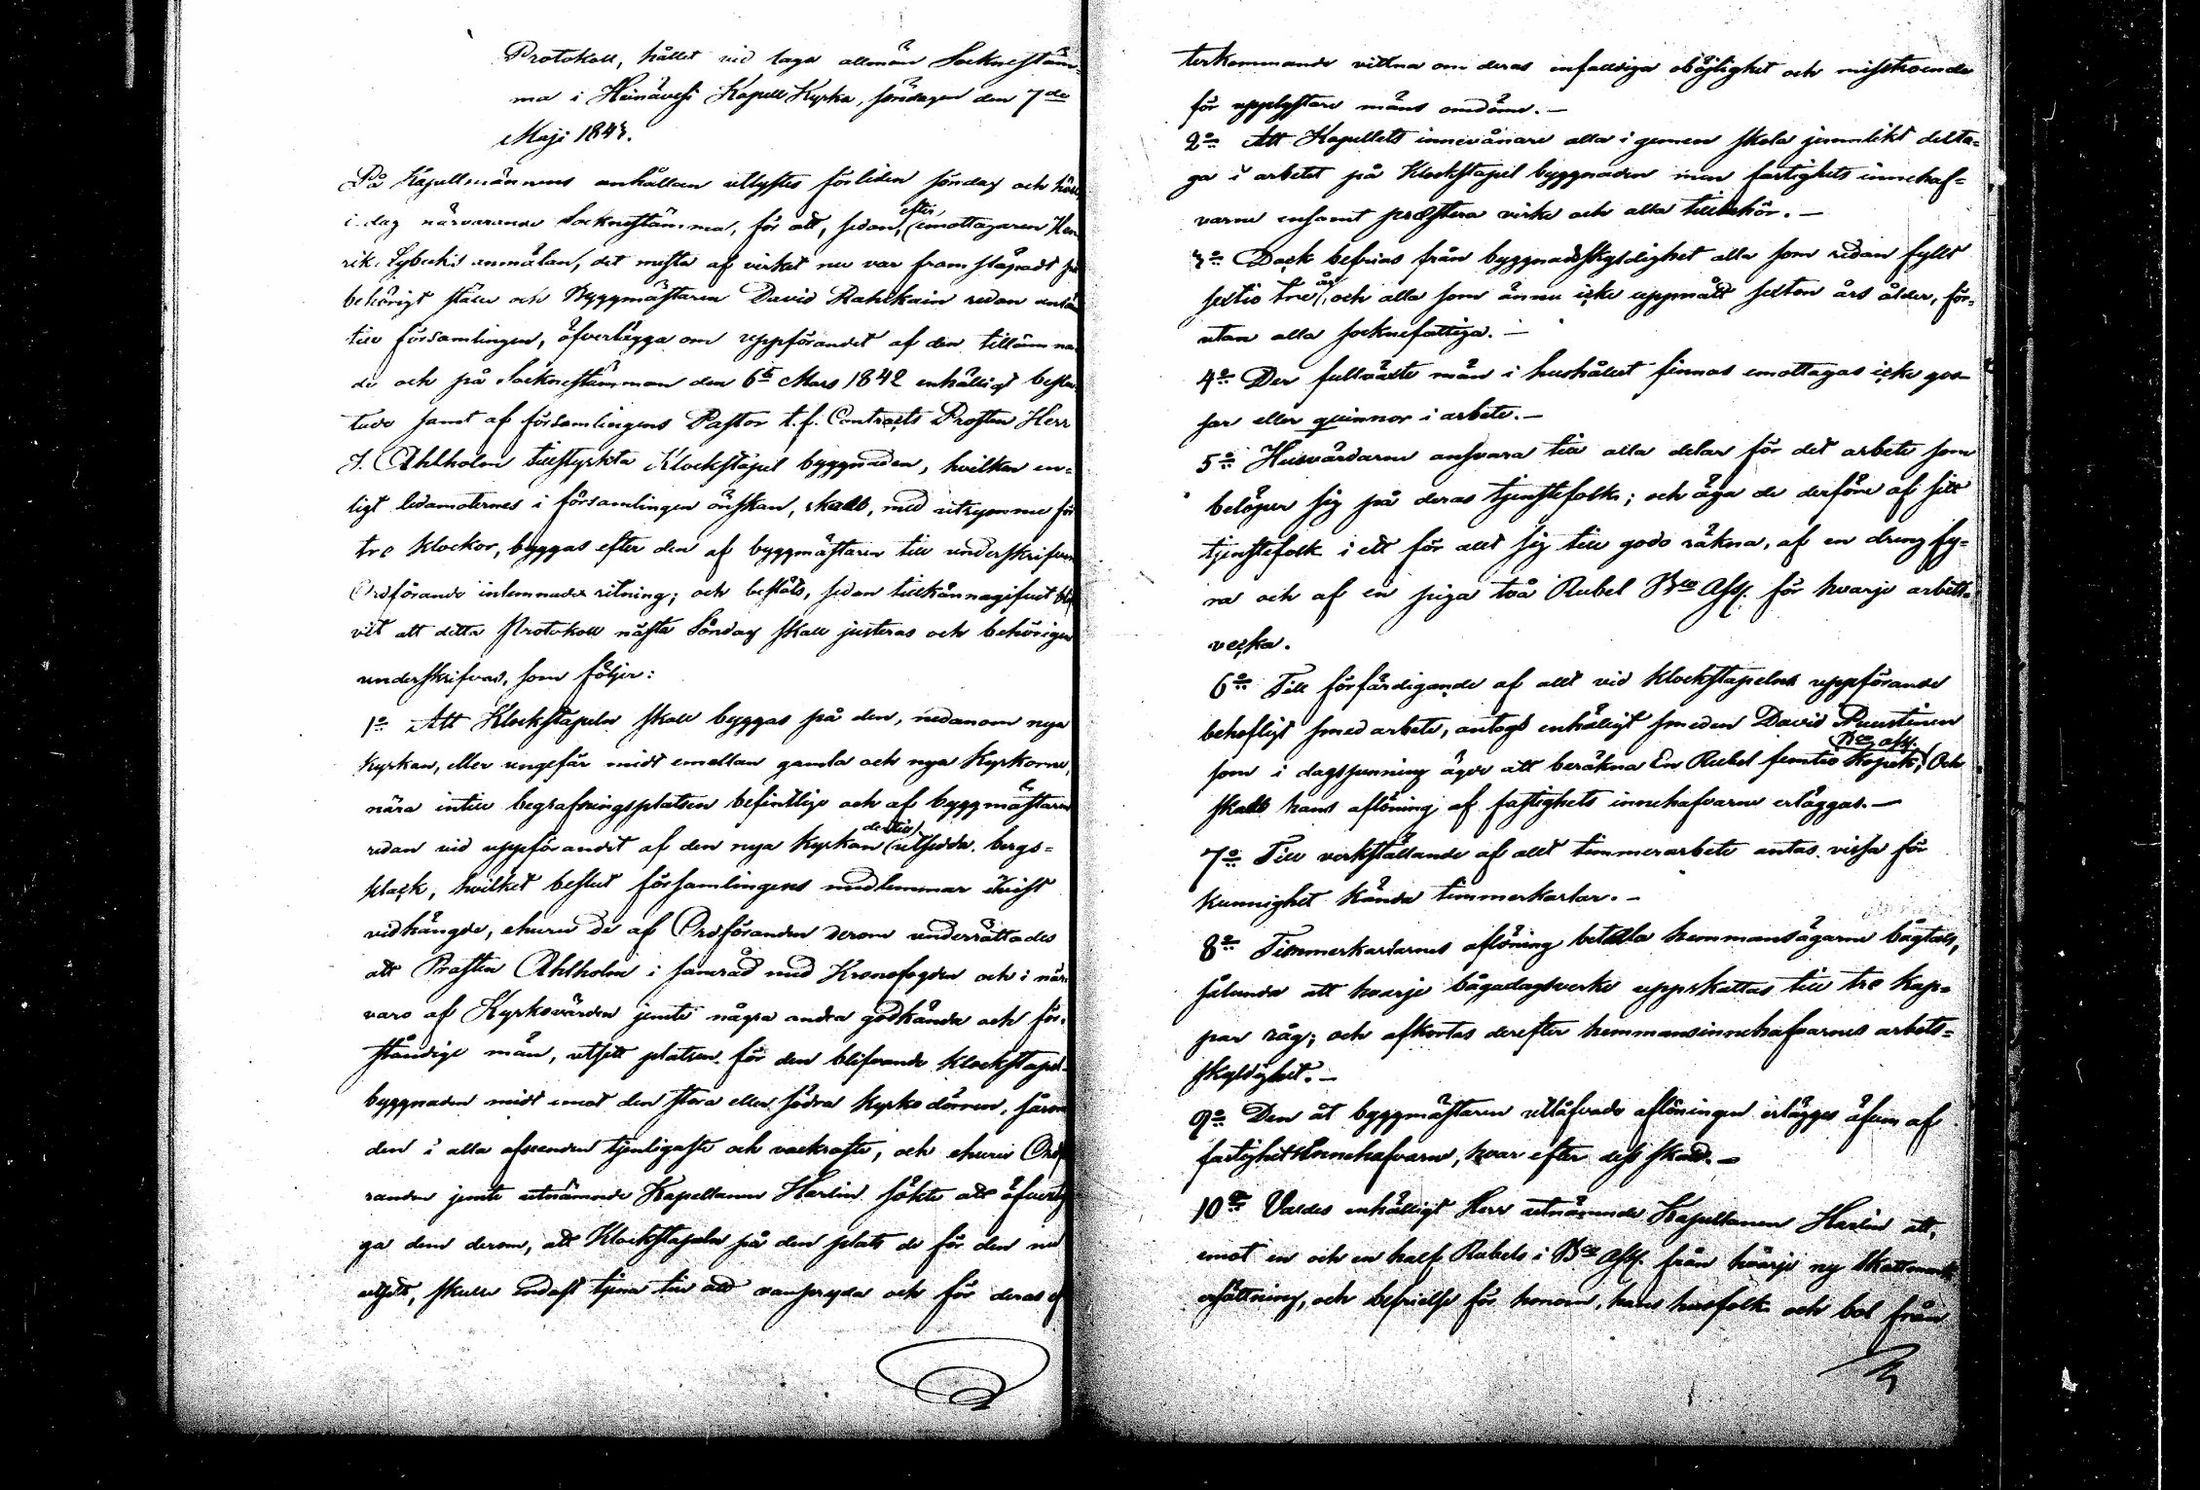 Protokoll, hållet vid laga allmän Sockneståm-
ma i Heinävesi Kapell Kyrka, söndagen den 7de
Maji 1843.
På Kapellmännens anhållan utlystes förliden söndag och hölls
i dag närvarande Socknestämma, för att, sedan, efter, emottagaren Hen
rik Lybecks anmälan, det mesta af virket nu var framsläpadt på
behörigt ställe och Byggmästaren David Rahikain redan anländ
till församlingen, öfverlägga om uppförandet af den tillämna
de och på Socknestämman den 6te Mars 1842 enhälligt beslu
tade samt af församlingens Pastor t.f. Contracts Prosten Herr
J. Ahlholm tillstyrkta Klockstapel byggnaden, hvilken en-
ligt ledamoternes i församlingen önskan, skall, med utrymme för
tre klockor, byggas efter den af byggmästaren till underskrifven
Ordförande inlemnade ritning; och beslöts, sedan tillkännagifvet bli
vit att detta Protokoll nästa Söndag skall justeras och behörigen
underskrifvas, som följer:
1o Att Klockstapeln skall byggas på den, nedanom nya
kyrkan, eller ungefär midt emellan gamla och nya Kyrkorne,
nära intill begrafningsplatsen befintlige och af byggmästaren
redan vid uppförandet af den nya kyrkan dertill utsedda bergs-
klack, hvilket beslut församlingens medlemmar envist
vidhängde, ehuru de af Ordföranden derom underrättades
att Prosten Ahlholm i samråd med Kronofogden och i når
varo af Kyrkovärden jemte några andra godkända och för-
ståndige män, utsett platsen för den blifvande klockstapel-
byggnaden midt emot den stora eller södra kyrko dörren, såsom
den i alla afseenden tjenligaste och vackraste, och ehuru Ordf
randen jemte utnämnde Kapellanen Harlin sökte att öfverty
ga dem derom, att Klockstapeln på den plats de för den nu
utsett, skulle endast tjena till att vanpryda och för deras ef
terkommande vittna om deras enfaldiga oböjlighet och misstroende
för upplystare mäns omdöme. —
2o Att Kapellets innevånare alla i gemen skola jemnlikt delta-
ga i arbetet på Klockstapel byggnaden men fastighets innehaf-
varne ensamt præstera virke och alla tillbehör. —
3o Dock befrias från byggnadsskyldighet alla som redan fyllt
sextio tre år, och alla som ännu icke uppnått sexton års ålder, för-
utan alla socknefattiga. —
4o Der fullväxte män i hushållet finnas emottagas icke gos-
sar eller quinnor i arbete. —
5o Husvärdarne ansvara till alla delar för det arbete som
belöper sig på deras tjenstefolk; och äga de derföre af sitt
tjenstefolk i ett för allt sig till godo räkna, af en dreng fy-
ra och af en piga två Rubel Bco Ass. för hvarje arbets-
vecka.
6o Till förfärdigande af allt vid klockstapelns uppförande
behofligt smed arbete, antogs enhälligt smeden David Puustinen
Bco ass.
som i dagspenning äger att beräkna En Rubel femtio Kopek; Och
skall hans aflöning af fastighets innehafvarne erläggas. —
7o Till verkställande af allt timmerarbete antas vissa för
kunnighet kända timmerkarlar. —
8o Timmerkarlarnes aflöning betala hemmansägarne bågtals,
sålunda att hvarje bågadagsverke uppskattas till tre kap-
par råg; och afkortas derefter hemmansinnehafvarnes arbets-
skyldighet. —
9o Den åt byggmästaren utlåfvade aflöningen erlägges äfven af
fastighets innehafvarne, hvar efter dess skatt. —
10o Valdes enhälligt Herr utnämnde Kapellanen Harlin att,
emot en och en half Rubels i Bco Ass. från hvarje ny skattmark
ersättning, och befrielse för honom, hans husfolk och bol från